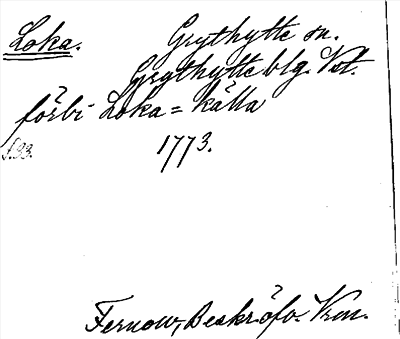 Loka. Grythytte sn.
Grythytte blg. Vstl.
förbi Loka = källa
s. 33. 1773.
Fernow, Beskr. öfv. Vrm.